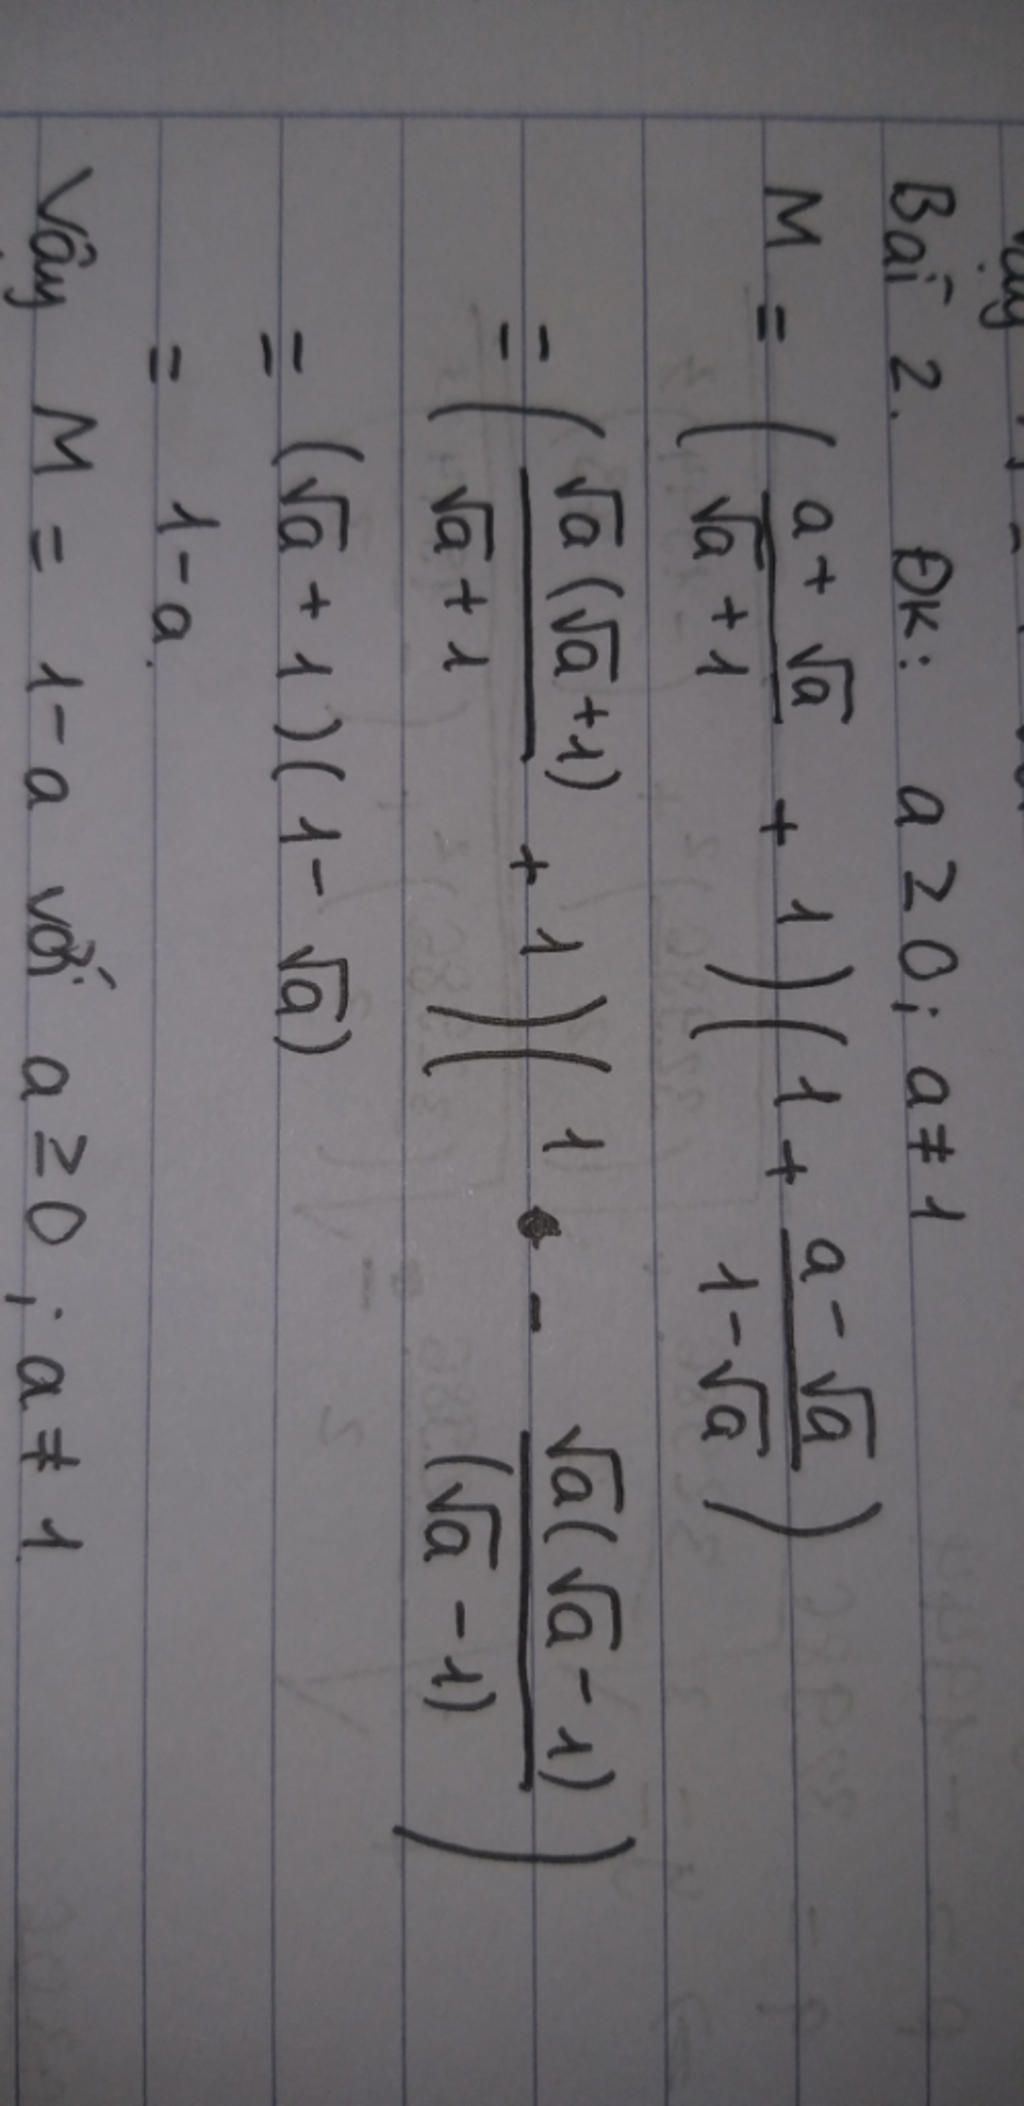 Bài 2. ĐK: a ≥ 0; a ≠ 1
M = ( (a + √a)/(√a + 1) + 1 ) ( 1 + (a - √a)/(1 - √a) )
= ( √a(√a + 1)/(√a + 1) + 1 ) ( 1 - √a(√a - 1)/(√a - 1) )
= (√a + 1)(1 - √a)
= 1 - a.
Vậy M = 1 - a với a ≥ 0; a ≠ 1